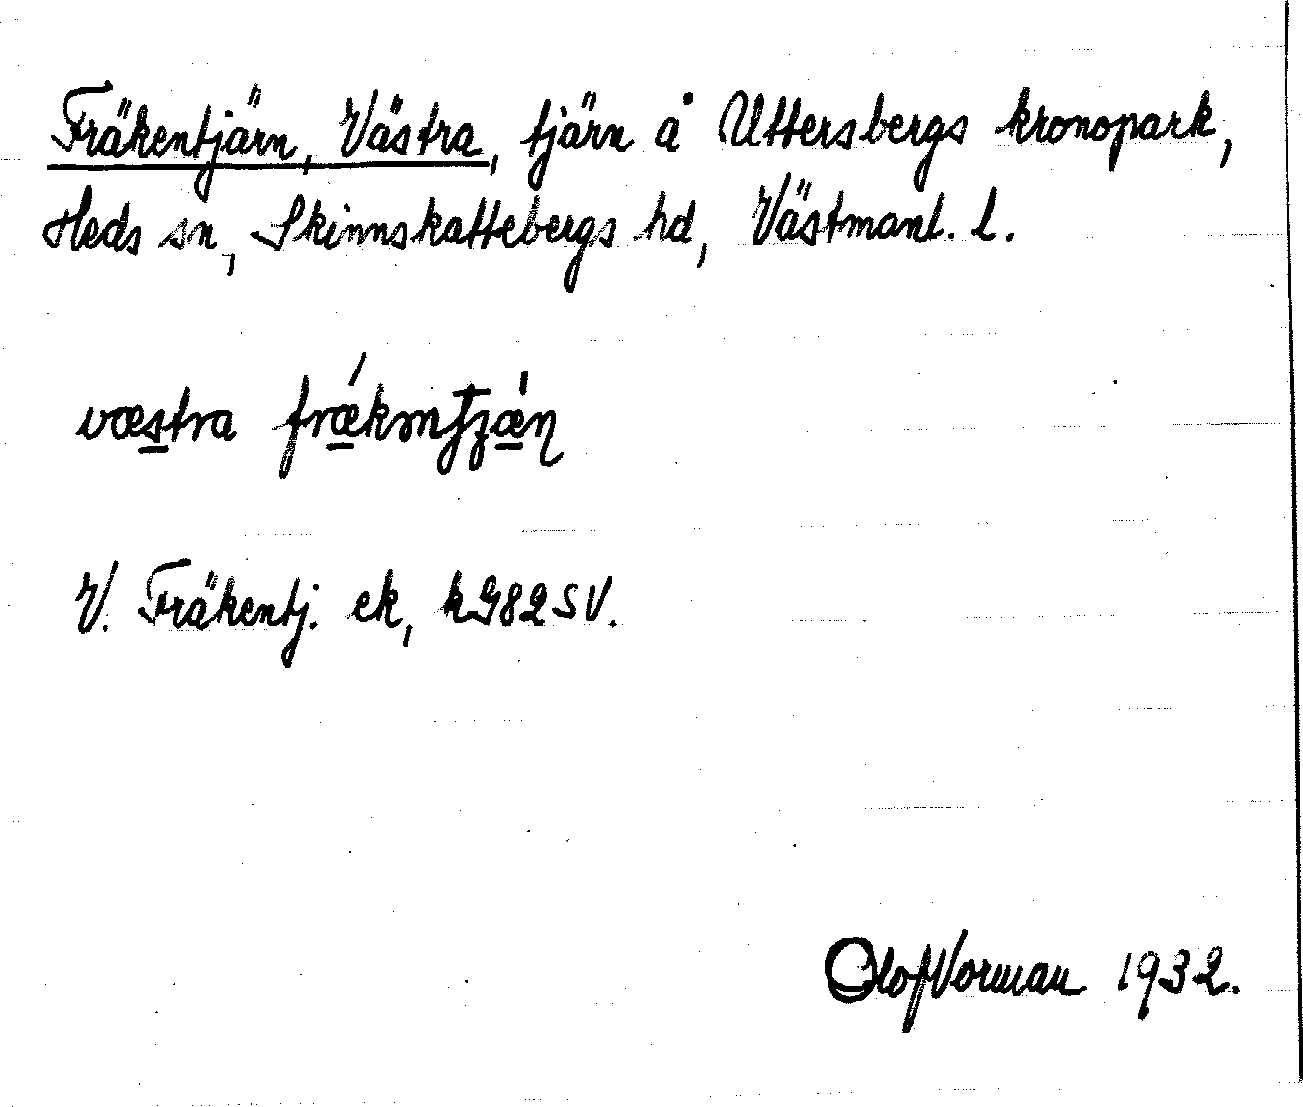 Fräkentjärn, Västra, tjärn å Uttersbergs kronopark,
Heds sn, Skinnskattebergs hd, Västmanl. l.
væstra
V. Fräkentj. ek, kG82SV.
Olof Vorman 1932.